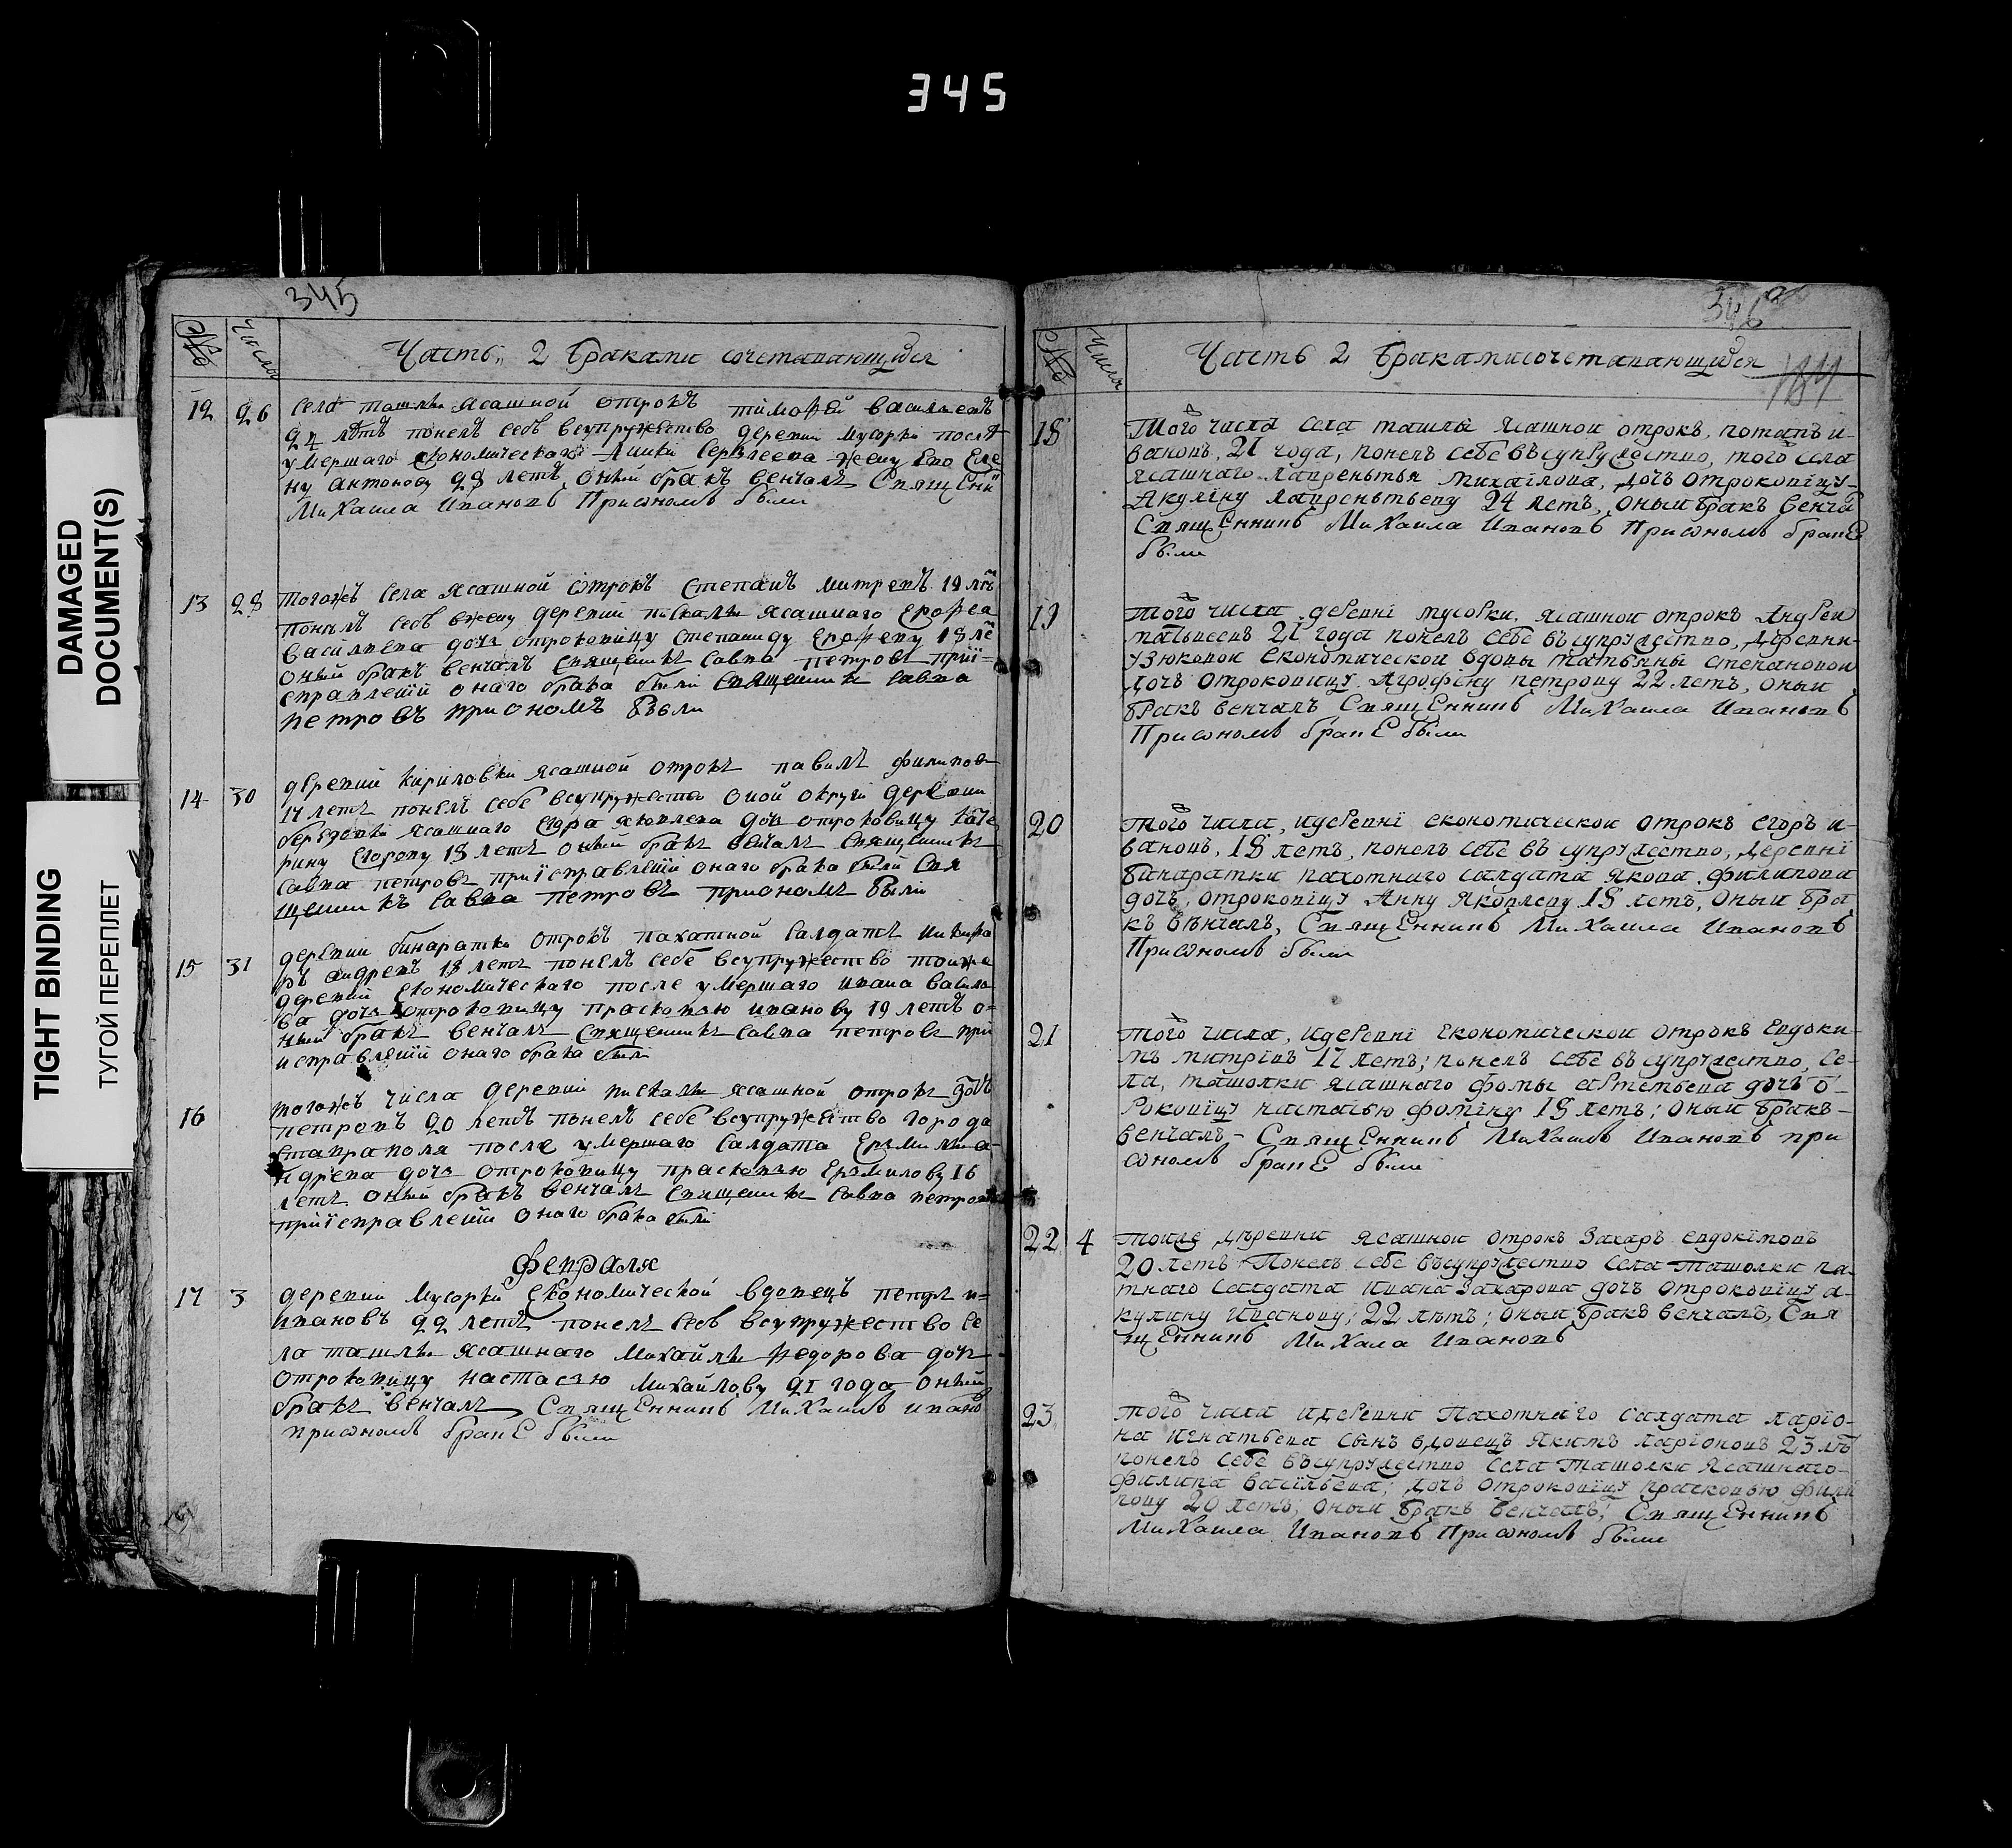 345
DAMAGED
DOCUMENT(S)
TIGHT BINDING
ТУГОЙ ПЕРЕПЛЕТ
345
№ Число
Часть 2 браками сочетавающихся
12 26 села ташлы ясашной отрокъ тимофей васильевъ
24 летъ понелъ себѣ всупружество деревни мусорки после
умершаго економическаго Сергеева жену ево Еле
ну антонову 28 летъ, оный бракъ венчалъ Священи
Михаила Ивановъ При ономъ были
13 28 тогожъ села ясашной отрокъ Степанъ митревъ 19 летъ
понялъ себѣ вжену деревни пискалы ясашнаго Ерофеа
василиева дочь отроковицу степаниду Ерофеву 18 ле
оный бракъ венчалъ священникъ Савва петровъ приї=
справлениї онаго брака были священникъ Савва
петровъ при ономъ были
14 30 деревни кириловки ясашной отрокъ павилъ филиповъ
17 летъ понелъ себе всупружество оной округи деревни
березовки ясашнаго Егора яковлева дочь отроковицу кате
рину Егореву 18 летъ оный бракъ венчалъ священникъ
Савва петровъ при їсправлениї онаго брака были Свя
щенникъ Савва петровъ при ономъ были
15 31 деревни бинаратки отрокъ пахатной Салдатъ никифа
ръ андревъ 18 летъ понелъ себе всупружество тоижа
деревни Економическаго после умершаго ивана васило
ва дочь отроковицу прасковью иванову 19 летъ о=
ный бракъ венчалъ священникъ Савва петровъ при
исправлениї онаго брака были
16 тогожъ числа деревни пискалы ясашной отрокъ
петровъ 20 летъ понелъ себе всупружество города
ставраполя после умершаго Салдата Ермила а=
ндрева дочь отроковицу прасковью Ермилову 16
летъ оный бракъ венчалъ священникъ Савва петровъ
при їсправлениї онаго брака были
февраля
17 3 деревни мусорки Економической вдовецъ петръ и=
ивановъ 22 летъ понелъ себѣ всупружество се
ла ташлы ясашнаго михайлы федорова дочь
отроковицу настасью михайлову 21 года оный
бракъ венчалъ Священникъ Михаилъ ивановъ
при ономъ браке были
346
№ Числа
Часть 2 браками сочетавающихся
184
18 Того числа села ташлы ясашнои отрокъ, потапъ и-
вановъ, 21 года, понелъ себе въсупружество, того села
ясашнаго лаврентья михаілова, дочь отроковіцу-
Акуліну лаврентьеву 24 летъ, оныи бракъ венча
Священникъ Михаила Ивановъ При ономъ браке
были
19 Того числа, деревні мусорки, ясашнои отрокъ Андреи
21 года понелъ себе въсупружество, деревни-
узюковои економическои вдовы татьяны степановои
дочь отроковицу Агрофену петрову 22 летъ, оныи
бракъ венчалъ Священникъ Михаила Ивановъ
При ономъ браке были
20 того числа, идеревні економическои отрокъ егоръ и-
вановъ, 18 летъ, понелъ себе въ супружество, деревні
бинаратки пахотнаго салдата якова филипова
дочь, отроковіцу Анну яковлеву 18 летъ, оныи бра
къ венчалъ, Священникъ Михаила Ивановъ
При ономъ были
21 Того числа, идеревні економическои отрокъ евдоки-
мъ митріевъ 17 летъ; понелъ себе въсупружество, се-
ла, ташолки ясашнаго фомы артемьева дочь о-
роковіцу настасью фоміну 18 летъ; оныи бракъ-
венчалъ- Священникъ Михаила Ивановъ при
ономъ браке были
22 4 тоиже деревни ясашнои отрокъ Захаръ евдокімовъ
20 летъ Понелъ себе въсупружество села ташолки па
тнаго салдата ивана захарова дочь отроковіцу а-
кулину иванову; 22 летъ; оныи бракъ венчалъ, Свя
щенникъ Михала Ивановъ
23 того числа идеревни Пахотнаго салдата ларіо-
на игнатьева сынъ вдовецъ якимъ ларіоновъ 23 ле
понелъ себе въсупружество села ташолки ясашнаго-
филипа васільева; дочь отроковіцу прасковью фили
пову 20 летъ; оныи бракъ венчалъ, Священникъ
Михаила Ивановъ При ономъ были